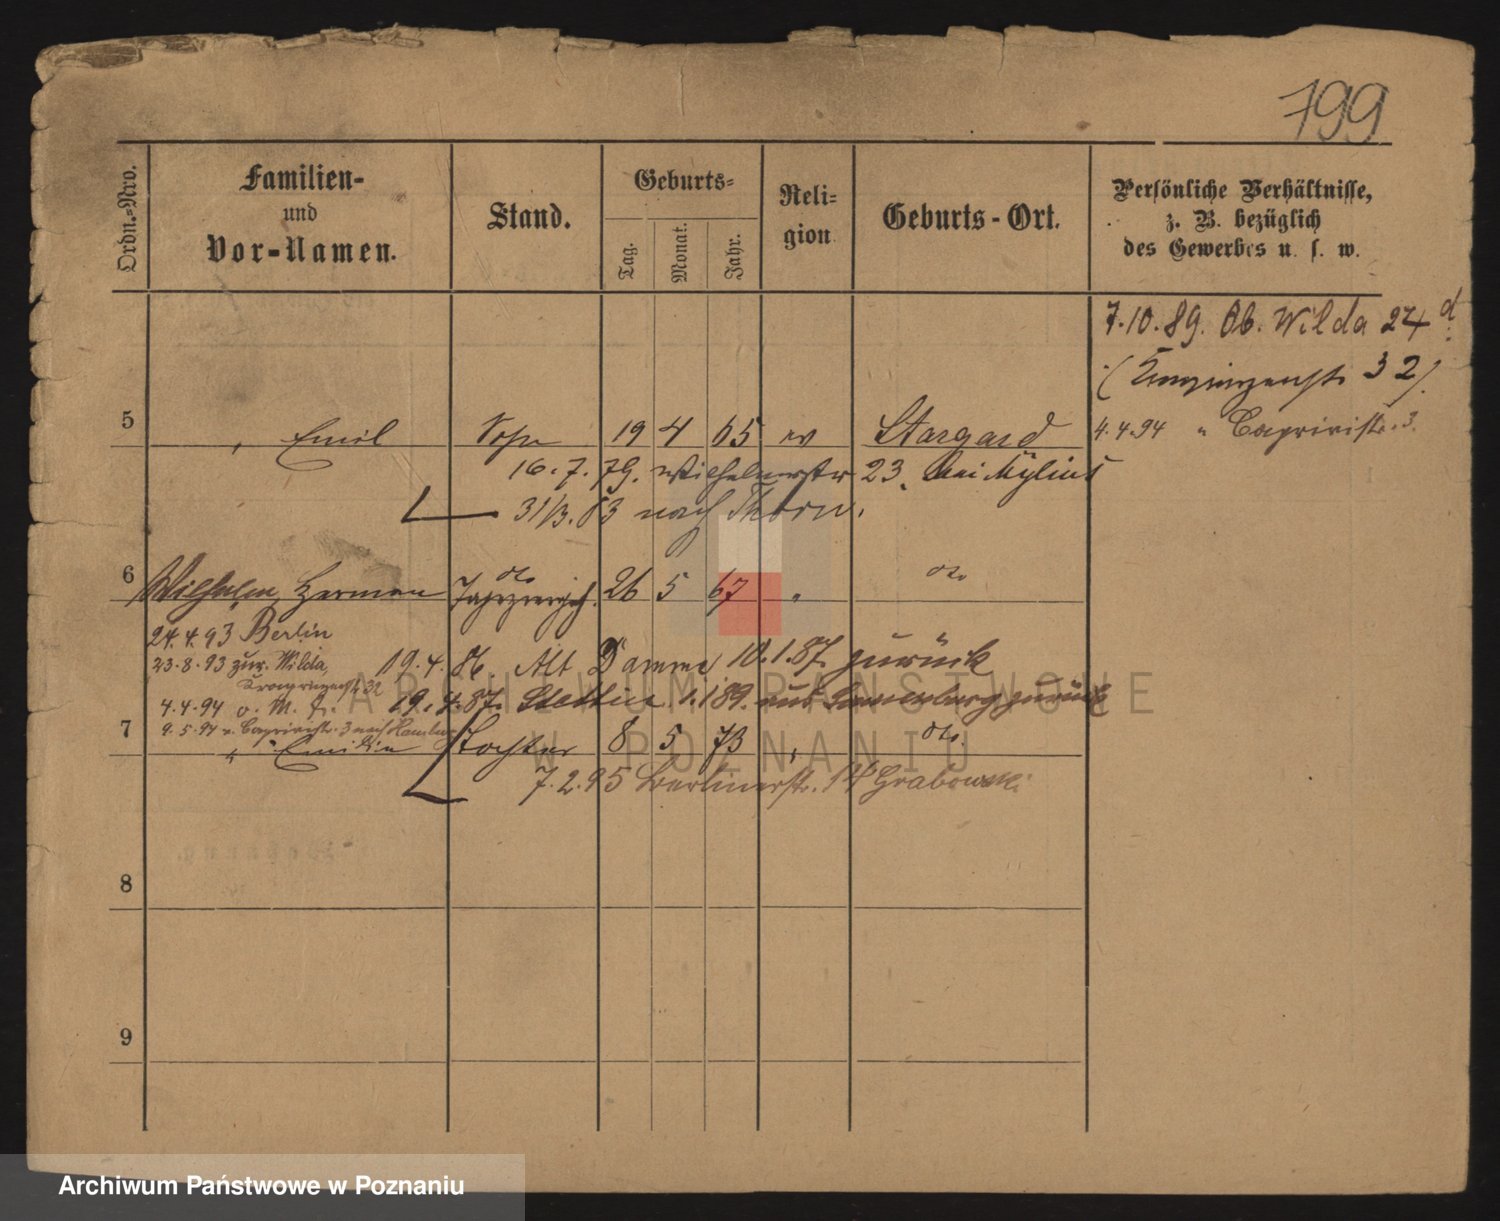 799
Ordn.-Nro.
Familien-
und
Vor-Namen.
Stand.
Geburts-
Tag.
Monat.
Jahr.
Reli-
gion
Geburts-Ort.
Persönliche Verhältnisse,
z. B. bezüglich
des Gewerbes u. s. w.
7.10.89. Ob. Wilda 24d.
(Kronprinzenstr. 32).
5 " Emil Sohn 19 4 65 ev Stargard
4.4.94 " Caprivistr. 3.
16.7.79. Wilhelmstr 23. bei Mylius
31/3.83 nach Thorn.
6 Wilhelm, Herman dto 26 5 67 " dto
24.4.93 Berlin
23.8.93 zur. Wilda,
Kronprinzenstr. 32
19.4.86 Alt Damm 10.1.87. zurück
4.4.94 v. M. 19.4.87. Stettin 1.1 89. aus zurück
9.5.94 v. Caprivistr. 3 nach Hamburg
7 " Emilie Tochter 8 5 73 " dto.
7.2.95 Berlinerstr. 14 Grabowski
8
9
ARCHIWUM PAŃSTWOWE
W POZNANIU
Archiwum Państwowe w Poznaniu